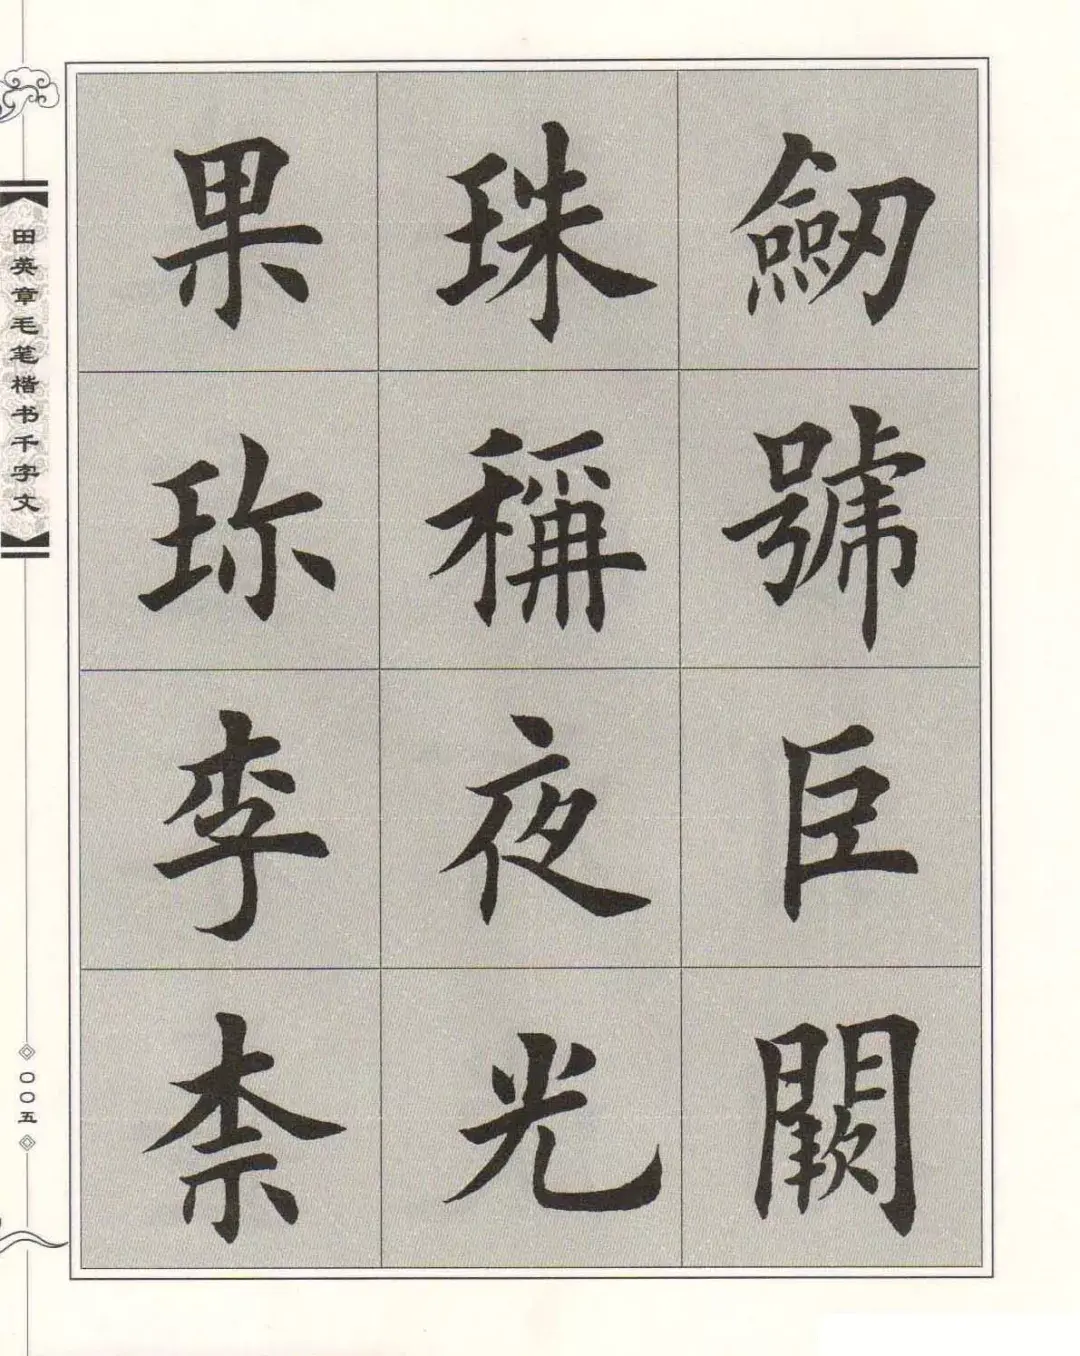 劒號巨闕
珠稱夜光
果珎李柰
田英章毛笔楷书千字文
〇〇五